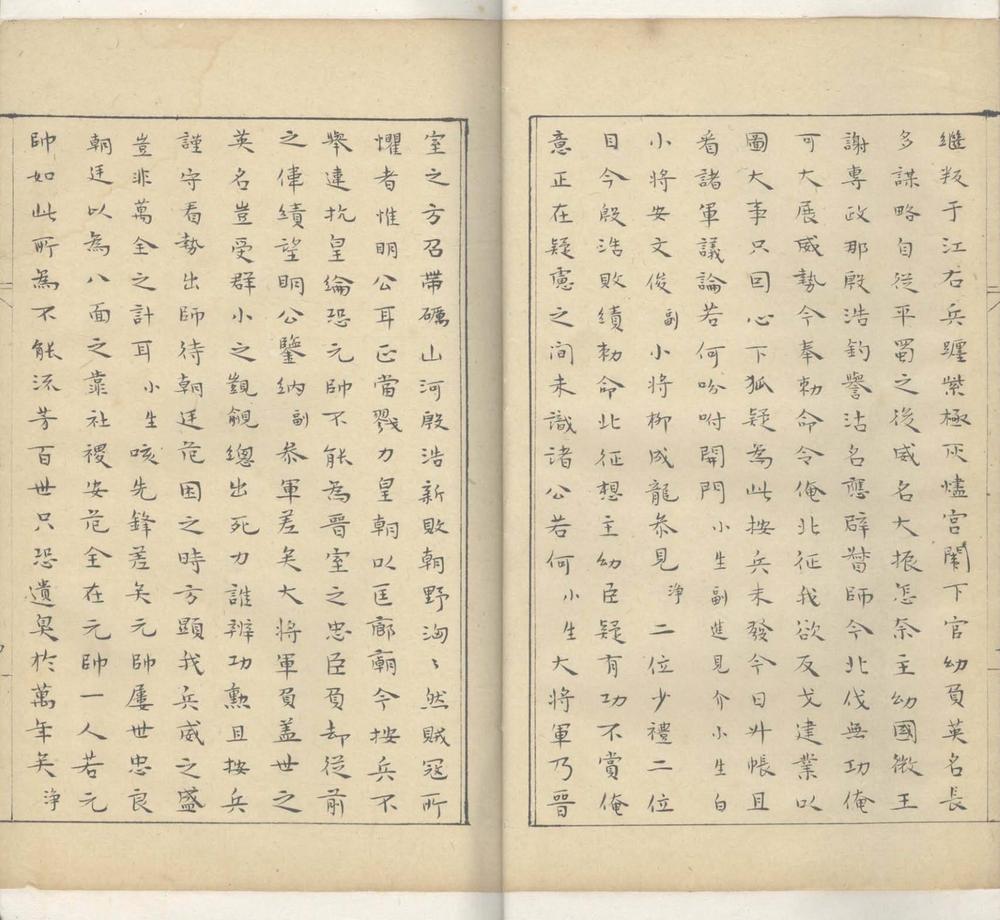 継叛于江右兵躔紫極灰燼宫闕下官幼負英名長
多謀略自從平蜀之後威名大振怎奈主幼國微王
謝專政那殷浩釣譽沽名應辟督師今北伐無功俺
可大展威勢今奉勅命令俺北征我欲反戈建業以
圖大事只因心下狐疑為此按兵未發今日升帳且
看諸軍議論若何吩咐開門小生副進見介小生白
小將安文俊副小將柳成龍叅見净二位少禮二位
目今殷浩敗績勅命北征想主幼臣疑有功不賞俺
意正在疑慮之间未識諸公若何小生大将軍乃晋
室之方召帶礪山河殷浩新敗朝野洶〻然賊冦所
懼者惟明公耳正當戮力皇朝以匡廊廟今按兵不
舉違抗皇綸恐元帥不能為晋室之忠臣負却從前
之偉績望明公鑒纳副叅軍差矣大将軍負盖世之
英名豈受群小之覬覦總出死力誰辨功勲且按兵
謹守看勢出師待朝廷危困之時方顯我兵威之盛
豈非萬全之計耳小生咳先鋒差矣元帥屢世忠良
朝廷以為八面之靠社稷安危全在元帥一人若元
帥如此所為不能流芳百世只恐遺臭於萬年矣净